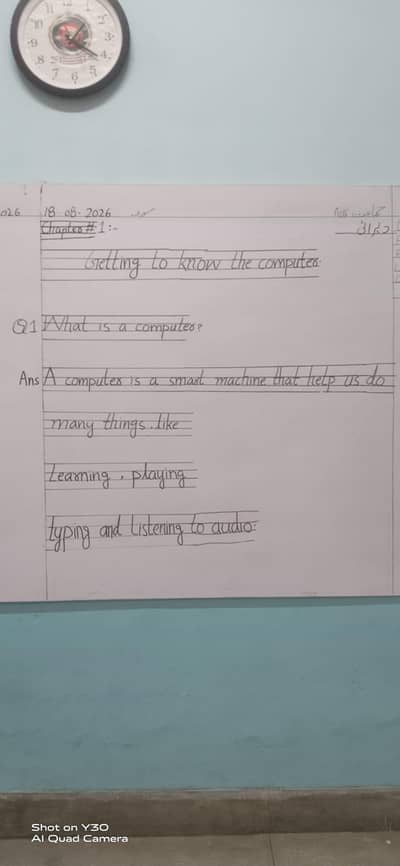 18-08-2026
Chapter # 1:-
Getting to know the computer.
Q1 What is a computer?
Ans A computer is a smart machine that help us do
many things. like
Learning, playing
typing and listening to audio.
Shot on Y30
AI Quad Camera